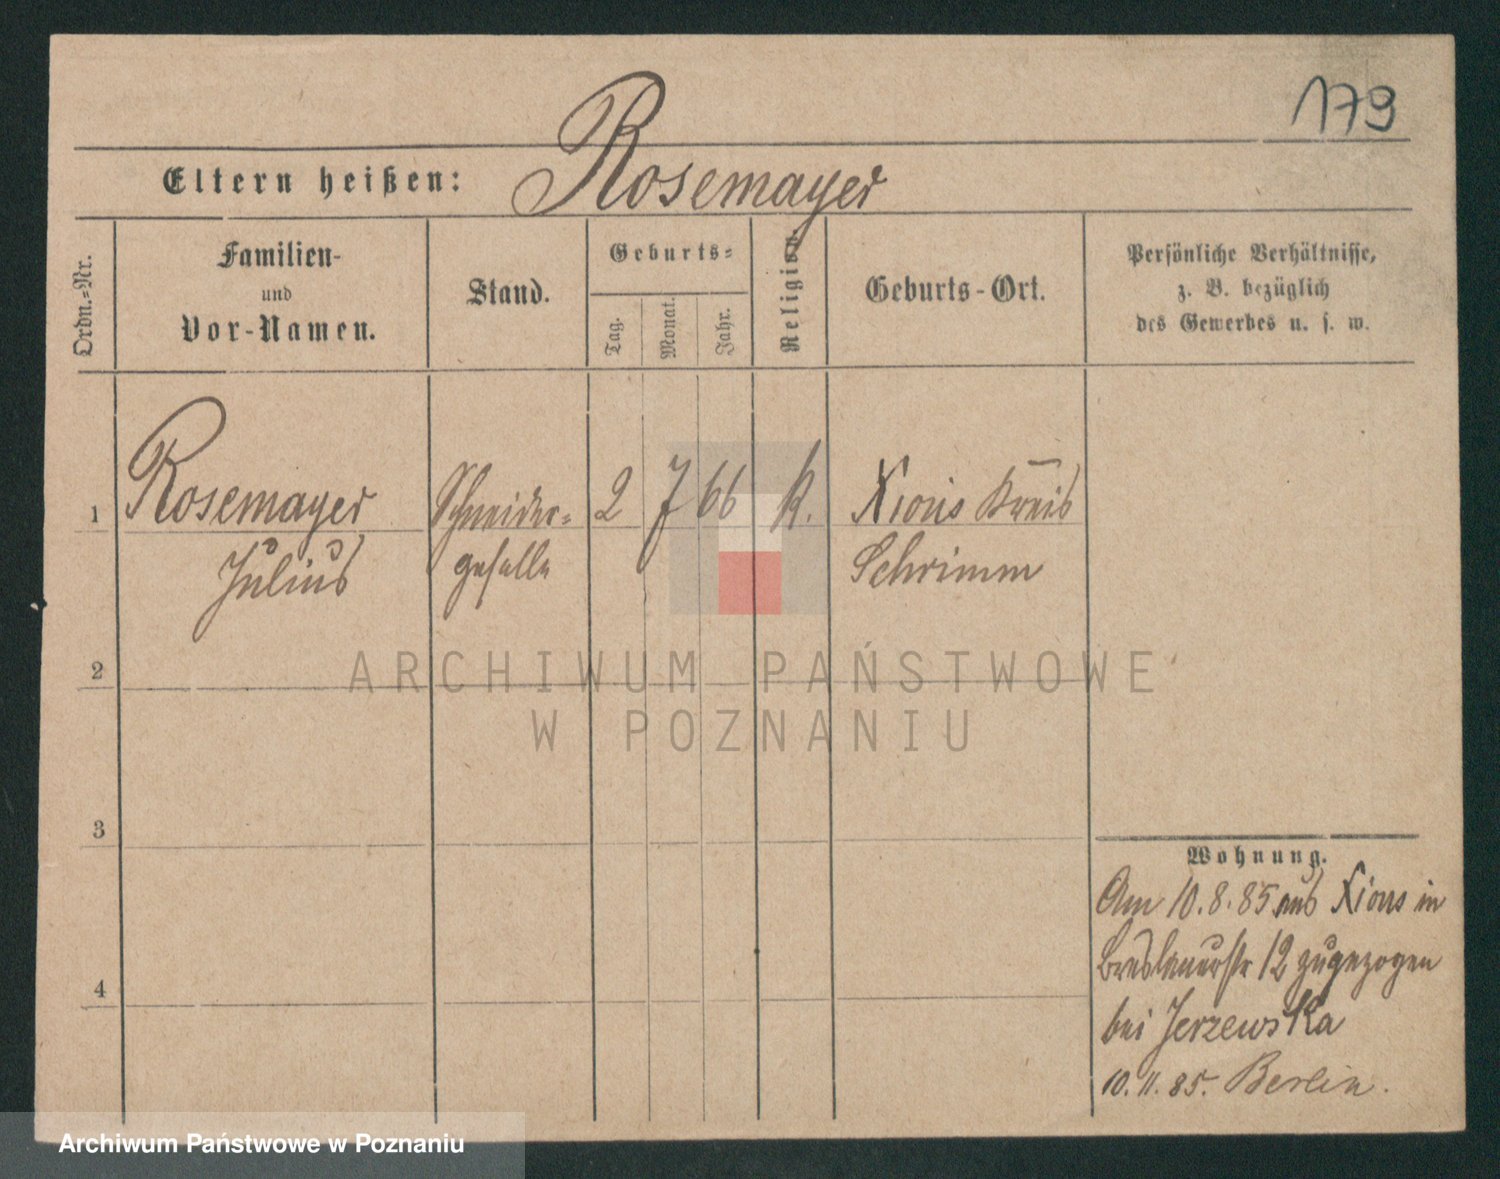 179
Eltern heißen: Rosemayer
Ordn.-Nr.
Familien-
und
Vor-Namen.
Stand.
Geburts-
Tag.
Monat.
Jahr.
Religion.
Geburts-Ort.
Persönliche Verhältnisse,
z. B. bezüglich
des Gewerbes u. s. w.
1 Rosemayer Schneider- 2 7 66 k. Xions Kreis
Julius geselle Schrimm
2
ARCHIWUM PAŃSTWOWE
W POZNANIU
3
Wohnung.
Am 10.8.85 aus Xions in
Breslauerstr 12 zugezogen
4
bei Jerzewska
10.11.85. Berlin.
Archiwum Państwowe w Poznaniu